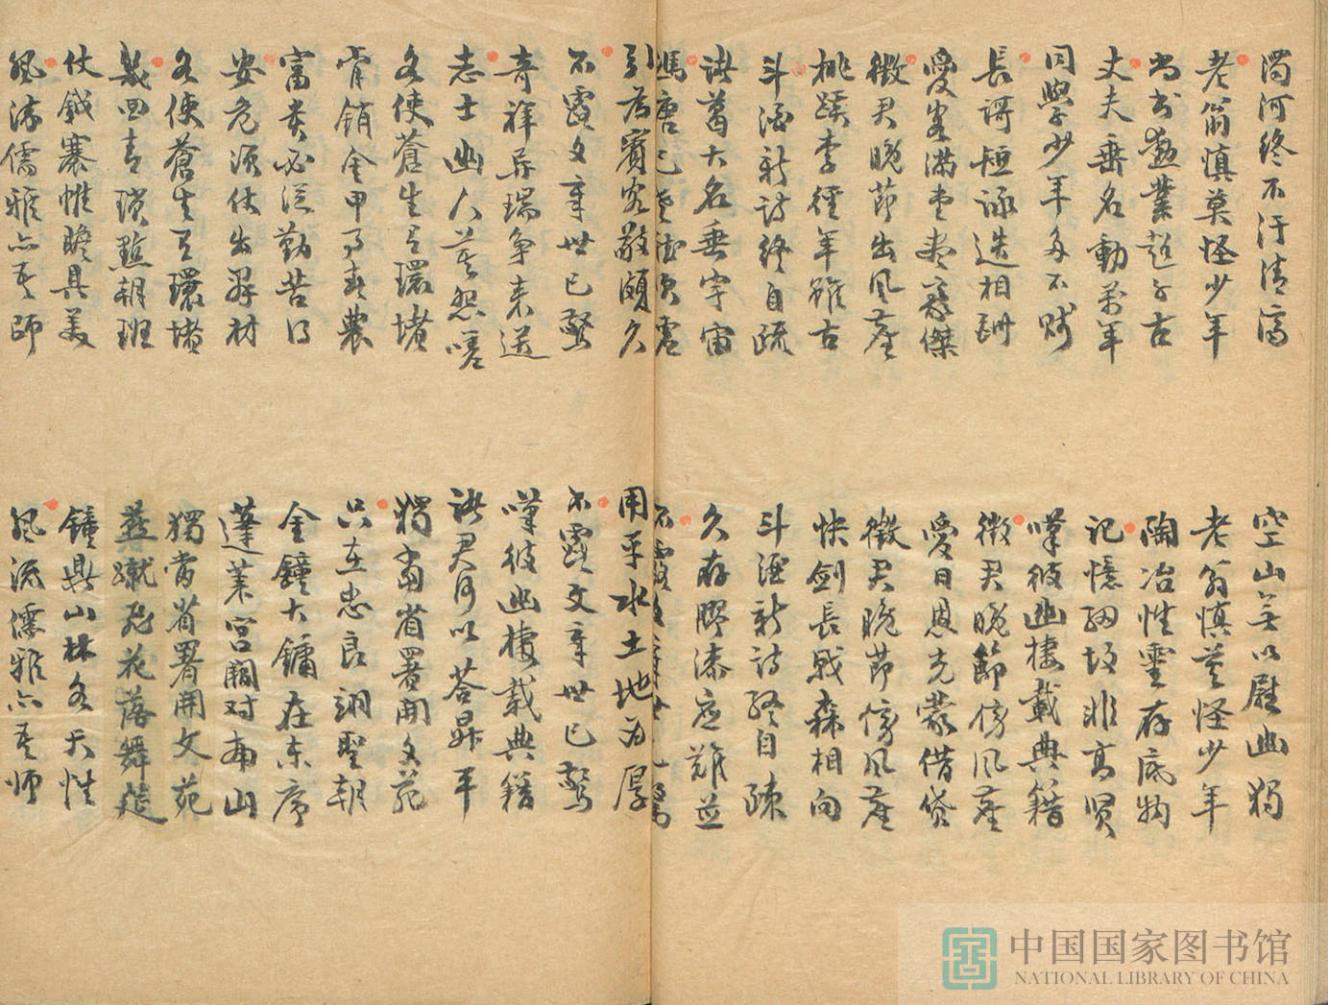 濁河終不汙清濟
老翁慎莫怪少年
尚書勳業超千古
丈夫垂名動萬年
同學少年多不賤
長謌短詠迭相酬
愛客滿堂盡豪傑
徵君晚節出風塵
桃蹊李徑年雖古
斗酒新詩終自疏
諸葛大名垂宇宙
馮唐已老
空山無以慰幽獨
老翁慎莫怪少年
陶冶性靈存底物
記憶細故非高賢
嘆彼幽棲載典籍
徵君晚節傍風塵
愛日恩光蒙借貸
徵君晚節傍風塵
快劍長戟森相向
斗酒新詩終自疎
久存膠漆應難並
不露文章世已驚
引為賓客敬頗久
不露文章世已驚
奇祥異瑞爭來送
志士幽人莫怨嗟
各使蒼生有環堵
肯銷金甲事春農
富貴必從勤苦得
安危須仗出群材
各使蒼生有環堵
幾回青瑣點朝班
仗鉞褰帷瞻具美
風流儒雅亦吾師
用平水土地為厚
不露文章世已驚
嘆彼幽棲載典籍
諸君何以答昇平
獨當省署開文苑
只在忠良翊聖朝
金鐘大鏞在東序
蓬萊宮闕对南山
獨當省署開文苑
燕蹴飛花落舞筵
鐘鼎山林各天性
風流儒雅亦吾師
中国国家图书馆
NATIONAL LIBRARY OF CHINA